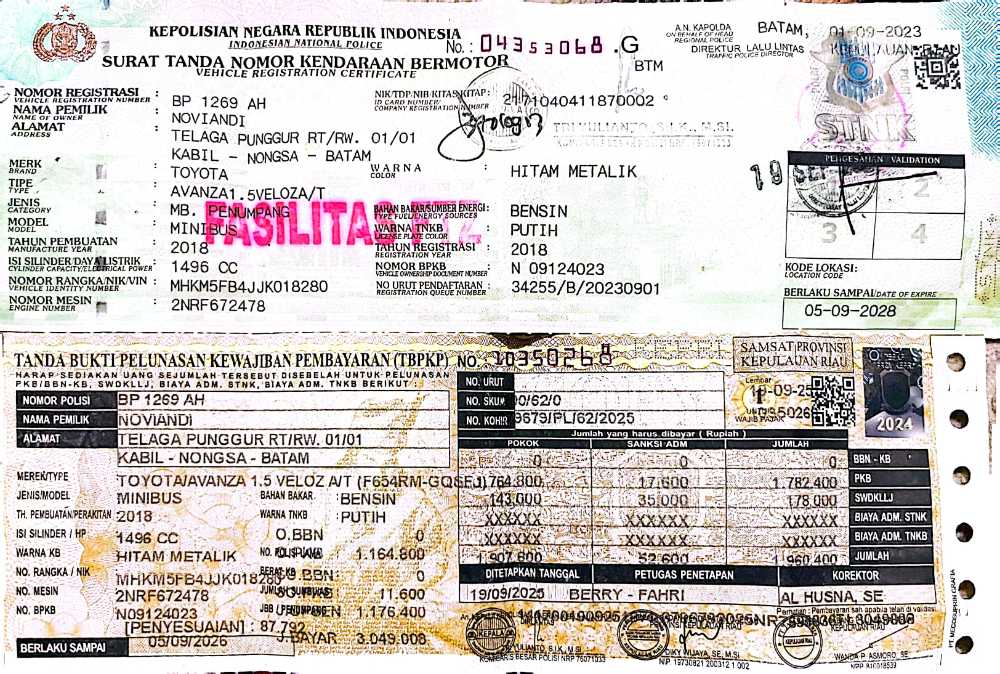 KEPOLISIAN NEGARA REPUBLIK INDONESIA
INDONESIAN NATIONAL POLICE
No.: 04353068 .G
SURAT TANDA NOMOR KENDARAAN BERMOTOR
VEHICLE REGISTRATION CERTIFICATE
BTM
A.N. KAPOLDA
ON BEHALF OF HEAD REGIONAL POLICE
DIREKTUR LALU LINTAS
TRAFFIC POLICE DIRECTOR
BATAM, 01-09-2023
KEPULAUAN
NOMOR REGISTRASI : BP 1269 AH
VEHICLE REGISTRATION NUMBER
NAMA PEMILIK : NOVIANDI
NAME OF OWNER
ALAMAT : TELAGA PUNGGUR RT/RW. 01/01
ADDRESS
KABIL - NONGSA - BATAM
NIK/TDP/NIB/KITAS/KITAP : 2171040411870002
ID CARD NUMBER/
COMPANY REGISTRATION NUMBER
TRI YULIANTO, S.I.K., M.SI.
STNK
MERK : TOYOTA
BRAND
TIPE : AVANZA1.5VELOZA/T
TYPE
JENIS : MB. PENUMPANG
CATEGORY
MODEL : MINIBUS
MODEL
TAHUN PEMBUATAN : 2018
MANUFACTURE YEAR
ISI SILINDER/DAYA LISTRIK : 1496 CC
CYLINDER CAPACITY/ELECTRICAL POWER
NOMOR RANGKA/NIK/VIN : MHKM5FB4JJK018280
VEHICLE IDENTITY NUMBER
NOMOR MESIN : 2NRF672478
ENGINE NUMBER
FASILITAS FTZ
WARNA : HITAM METALIK
COLOR
BAHAN BAKAR/SUMBER ENERGI : BENSIN
TYPE FUEL/ENERGY SOURCES
WARNA TNKB : PUTIH
LICENSE PLATE COLOR
TAHUN REGISTRASI : 2018
REGISTRATION YEAR
NOMOR BPKB : N 09124023
VEHICLE OWNERSHIP DOCUMENT NUMBER
NO URUT PENDAFTARAN : 34255/B/20230901
REGISTRATION QUEUE NUMBER
19 SEP
PENGESAHAN VALIDATION
2
3 4
KODE LOKASI:
LOCATION CODE
BERLAKU SAMPAI/DATE OF EXPIRE :
05-09-2028
TANDA BUKTI PELUNASAN KEWAJIBAN PEMBAYARAN (TBPKP) NO. 10350268
HARAP SEDIAKAN UANG SEJUMLAH TERSEBUT DISEBELAH UNTUK PELUNASAN
PKB/BBN-KB, SWDKLLJ, BIAYA ADM. STNK, BIAYA ADM. TNKB BERIKUT :
SAMSAT PROVINSI
KEPULAUAN RIAU
NOMOR POLISI BP 1269 AH
NAMA PEMILIK NOVIANDI
ALAMAT TELAGA PUNGGUR RT/RW. 01/01
KABIL - NONGSA - BATAM
NO. URUT
NO. SKUM 00/62/0
NO. KOHIR 9679/PL/62/2025
Lembar
19-09-25
1
UNTUK
WAJIB PAJAK
5026
2024
MEREK/TYPE TOYOTA/AVANZA 1.5 VELOZ A/T (F654RM-GQSFJ)
JENIS/MODEL MINIBUS
TH. PEMBUATAN/PERAKITAN 2018
ISI SILINDER / HP 1496 CC
WARNA KB HITAM METALIK
NO. RANGKA / NIK MHKM5FB4JJK018280
NO. MESIN 2NRF672478
NO. BPKB N09124023
[PENYESUAIAN] : 87.792
BERLAKU SAMPAI 05/09/2026
BAHAN BAKAR : BENSIN
WARNA TNKB : PUTIH
O.BBN : 0
1.164.800
O.BBN : 0
11.600
1.176.400
J.BAYAR : 3.049.008
Jumlah yang harus dibayar ( Rupiah )
POKOK SANKSI ADM JUMLAH
0 0 0 BBN - KB
1.764.800 17.600 1.782.400 PKB
143.000 35.000 178.000 SWDKLLJ
XXXXXX XXXXXX XXXXXX BIAYA ADM. STNK
XXXXXX XXXXXX XXXXXX BIAYA ADM. TNKB
1.907.800 52.600 1.960.400 JUMLAH
DITETAPKAN TANGGAL PETUGAS PENETAPAN KOREKTOR
19/09/2025 BERRY - FAHRI AL HUSNA, SE
Perhatian : Pembayaran sah apabila telah di validasi
KEPULAUAN RIAU
KOMBES BESAR POLISI NRP 76071033
DIKY WIJAYA, SE, M.Si
NIP. 19730821 200312 1 002
WANDA P. ASMORO, SE